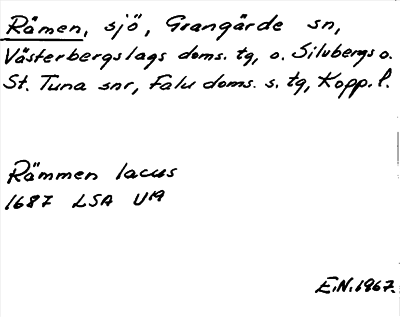 Rämen, sjö, Grangärde sn,
Västerbergslags doms. tg, o. Silvbergs o.
St. Tuna snr, Falu doms. s. tg, Kopp. l.
Rämmen lacus
1687 LSA U19
E.N. 1967.